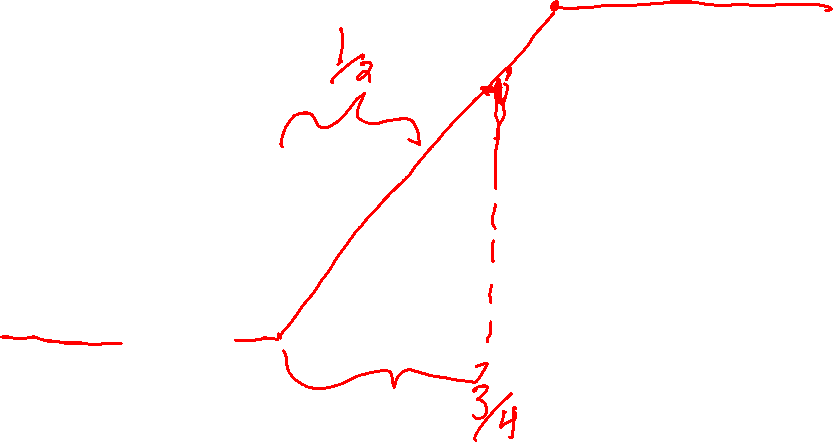 1/2
3/4